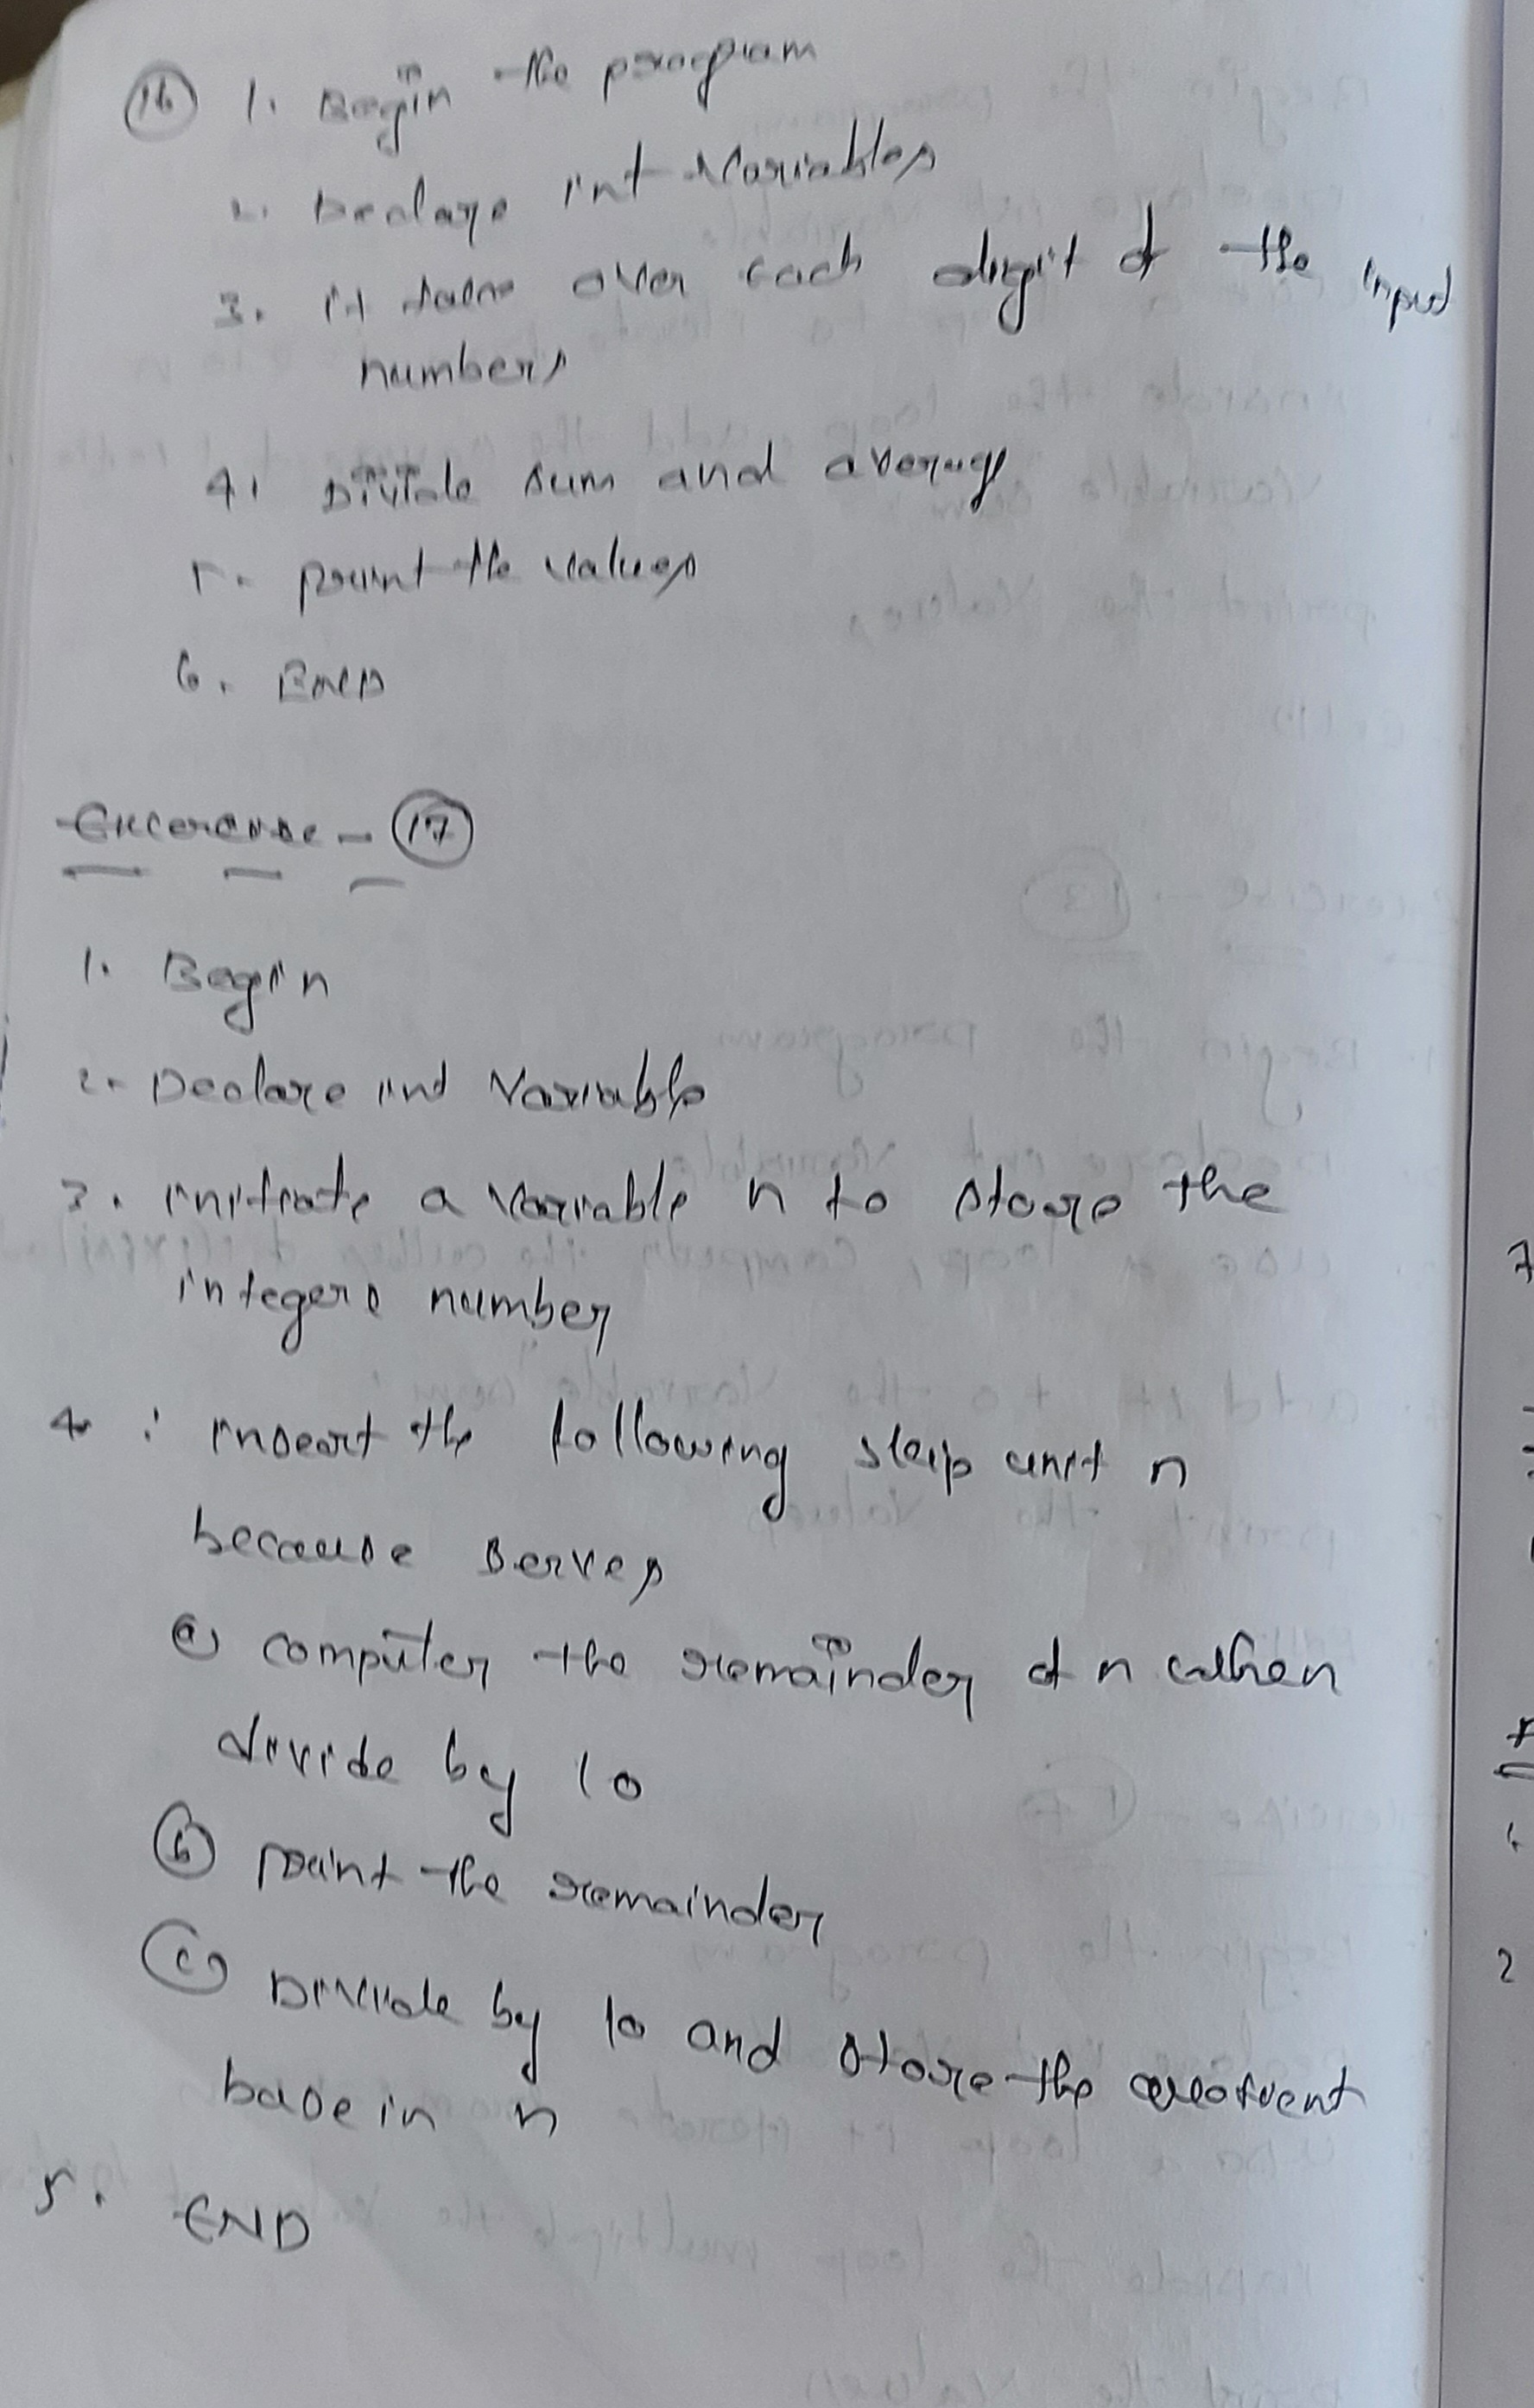 16 1. Begin the program
2. Declare int variables
3. it over each digit of the input
numbers
4. Divide sum and average
5. print the values
6. End
Excercise - 17
1. Begin
2. Declare int Variable
3. initiate a variable n to store the
integers number
4. insert the following step unit n
because
a) computer the remainder of n when
divide by 10
b) print the remainder
c) Divide by 10 and store the quotient
base in n
5. END